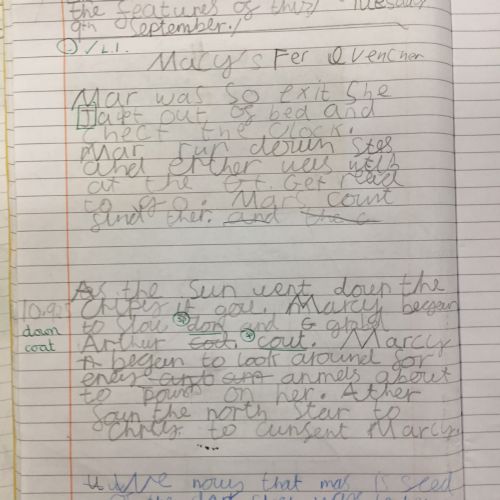 the features of this/ Tuesday
9th September./
L.I.
Macy's Fer Qvencher
Mar was so exit She
Japt out of bed and
chect the clock.
Mar run down stes
and erther wes with
at the Get read
to go. Mars count
find ther. and the c
As the Sun went down the
10.9.25 it gou. Marcy began
down to slow don and G
coat Arther cout. cout. Marcy
A began to look around for
eneys and an anmels about
to pounts on her. Ather
Saun the north Star to
Chrity to cunsent Marcy.
We nows that mas is seed